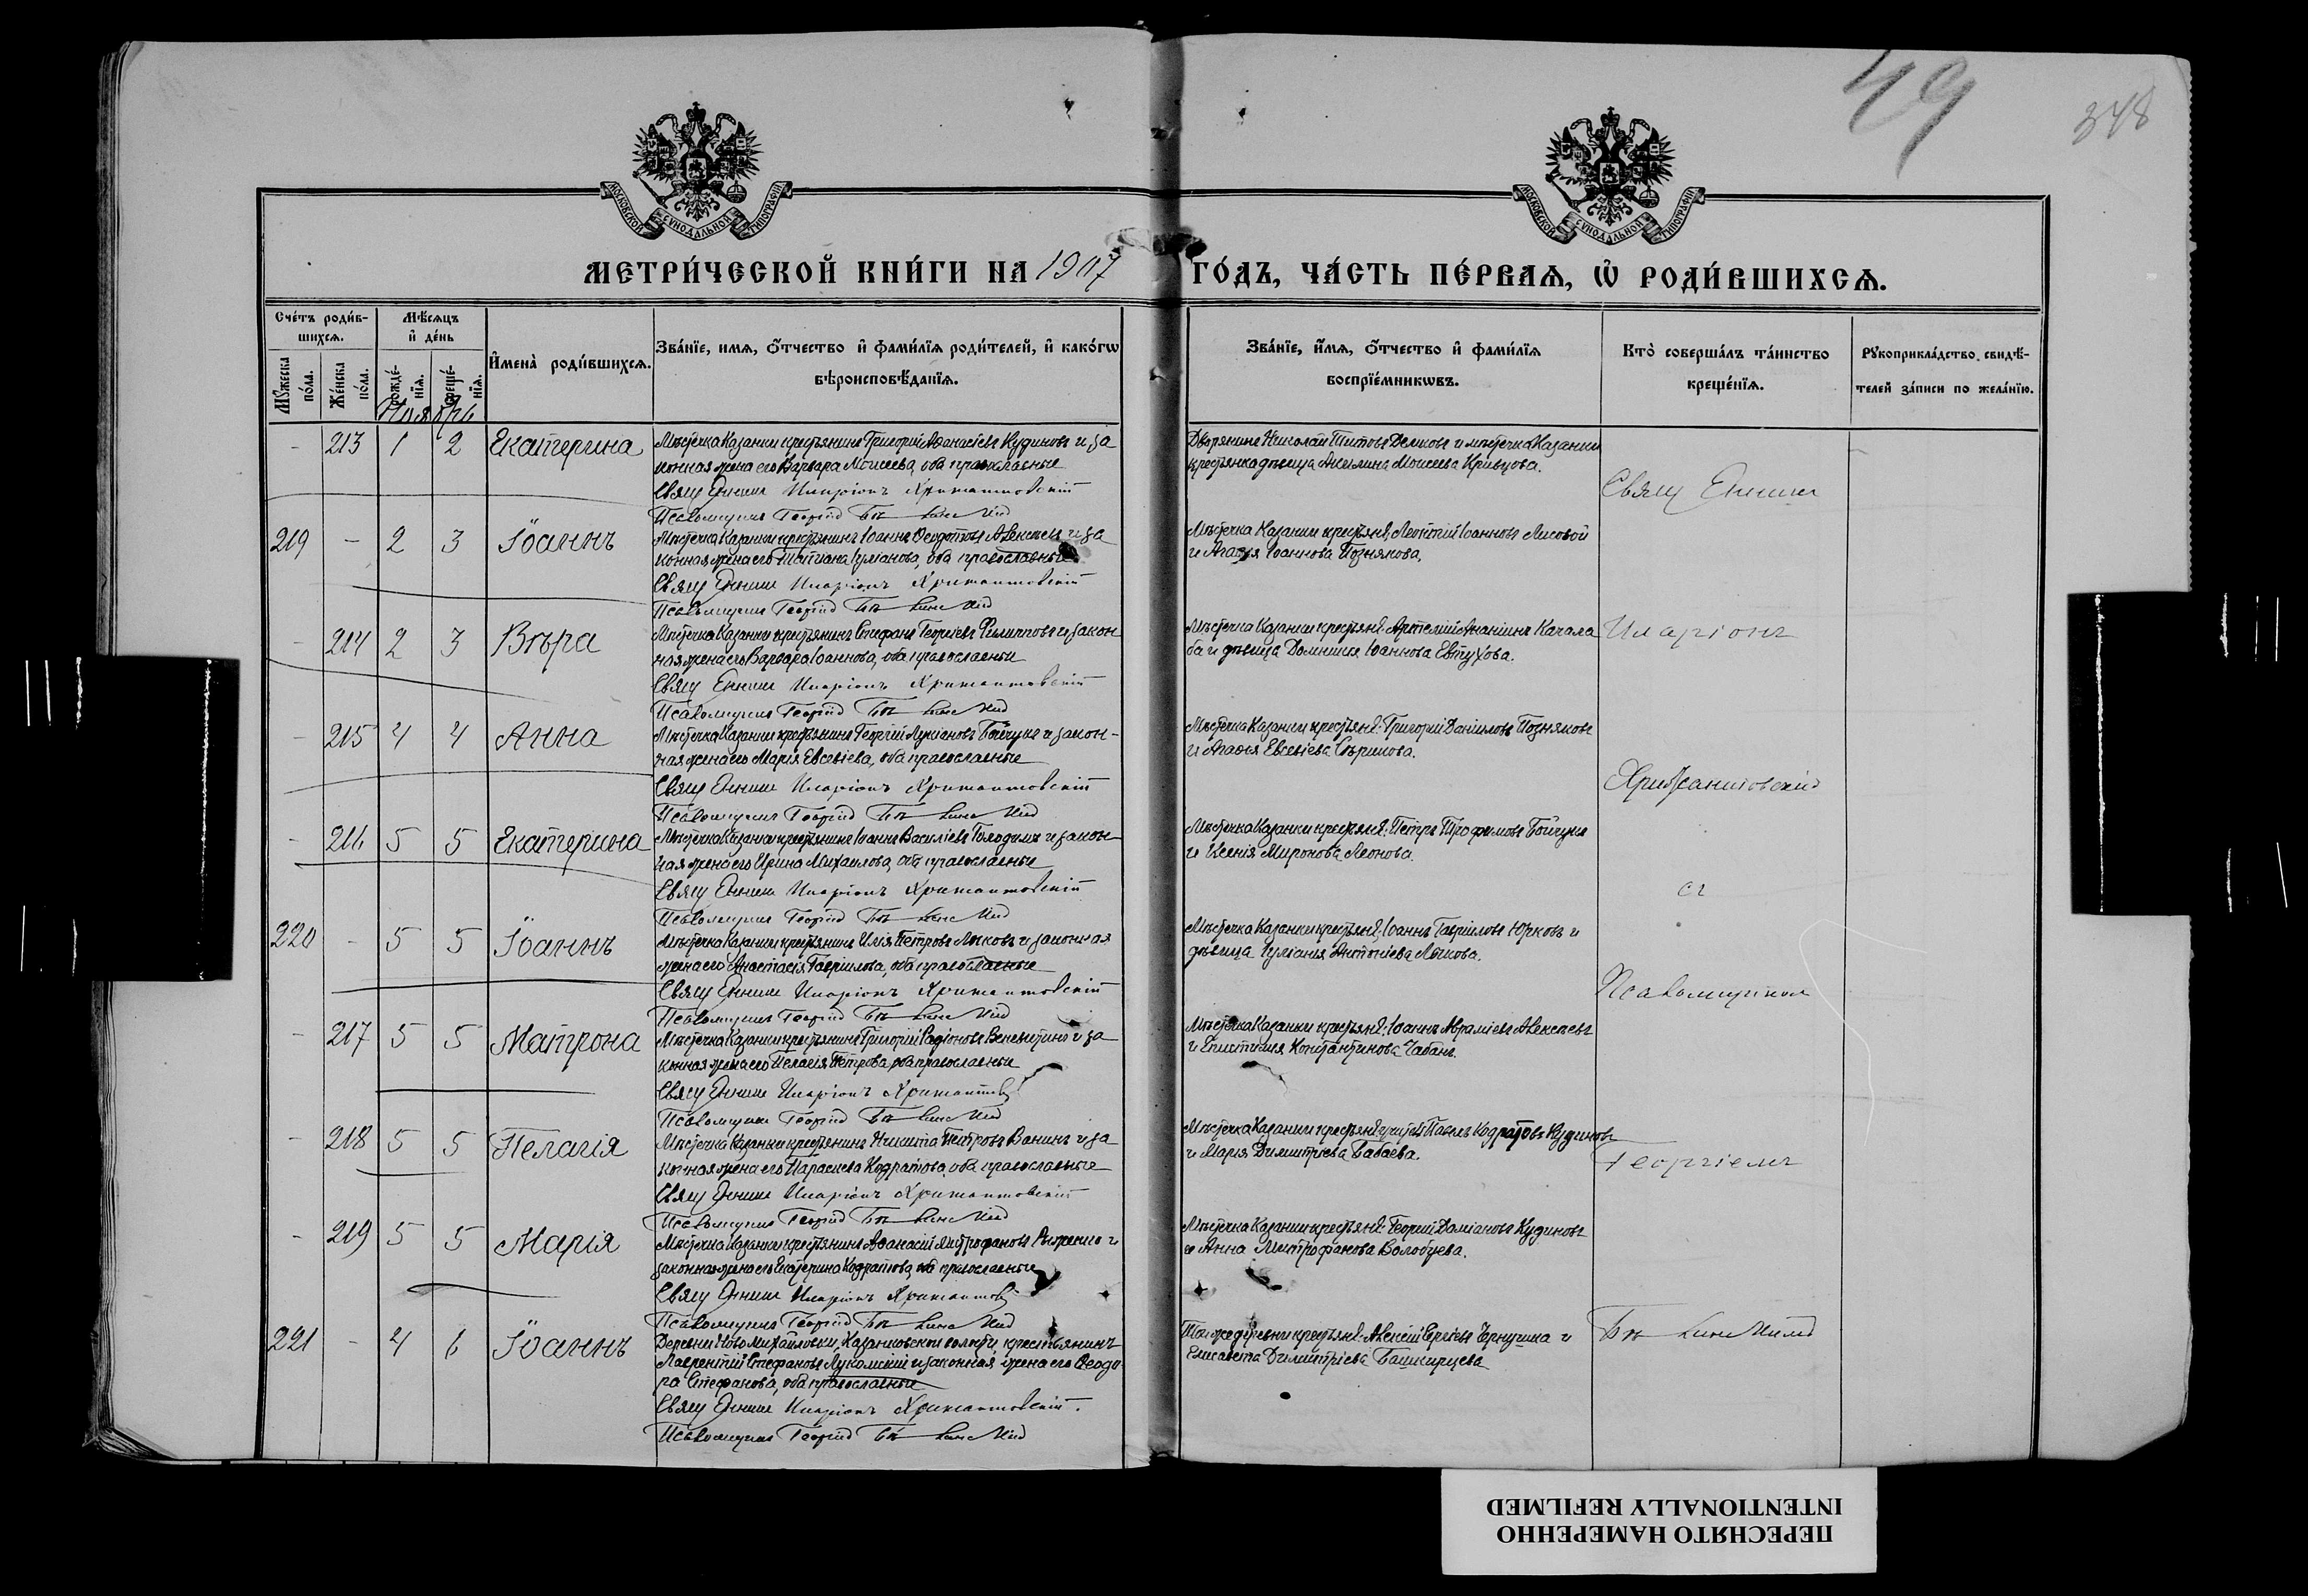 49
348
МОСКОВСКОЙ СѴНОДАЛЬНОЙ ТИПОГРАФІИ
МОСКОВСКОЙ СѴНОДАЛЬНОЙ ТИПОГРАФІИ
МЕТРИ́ЧЕСКОЙ КНИ́ГИ НА 1907 ГО́ДЪ, ЧА́СТЬ ПЕ́РВАЯ, Ѿ РОДИ́ВШИХСѦ.
Сче́тъ роди́в-
шихсѧ.
Мꙋ́жеска по́ла.
Же́нска по́ла.
Мѣ́сѧцъ
и҆ де́нь
рожде́-нїѧ.
креще́-нїѧ.
Ноябрь
И҆мена̀ роди́вшихсѧ.
Зва́нїе, имѧ, о҆́тчество и҆ фами́лїѧ роди́телей, и҆ како́гѡ
вѣроисповѣ́данїѧ.
Зва́нїе, и҆́мѧ, о҆́тчество и҆ фами́лїѧ
воспрїе́мникѡвъ.
Кто̀ соверша́лъ та́инство
креще́нїѧ.
Рꙋкоприкла́дство свидѣ́-
телей за́писи по жела́нїю.
- 213 1 2 Екатерина
Мѣстечка Казанки крестьянинъ Григорій Аѳанасіевъ Кудиновъ и за
конная жена его Варвара Моисеева, оба православные
Свящ Иларіонъ Хрисантовскій
Псаломщикъ Георгій
Дворянинъ Николай Титовъ и мѣстечка Казанки
крестьянка дѣвица Акилина Моисеева Кривцова.
219 - 2 3 Іоаннъ
Мѣстечка Казанки крестьянинъ Іоаннъ Ѳеодотовъ Алексѣевъ и за
конная жена его Татіана Іуліанова, оба православные
Свящ Иларіонъ Хрисантовскій
Псаломщикъ Георгій
Мѣстечка Казанки крестьяне: Леонтій Іоанновъ Лисовой
и Агаѳія Іоаннова Познякова.
- 214 2 3 Вѣра
Мѣстечка Казанки крестьянинъ Стефанъ Георгіевъ Филипповъ и закон
ная жена его Варвара Іоаннова, оба православные
Свящ Иларіонъ Хрисантовскій
Псаломщикъ Георгій
Мѣстечка Казанки крестьяне: Артемій Ананіинъ Качала
ба и дѣвица Домникія Іоаннова Евтухова.
- 215 4 4 Анна
Мѣстечка Казанки крестьянинъ Георгій Лукіановъ Бойчукъ и закон-
ная жена его Марія Евсевіева, оба православные
Свящ Иларіонъ Хрисантовскій
Псаломщикъ Георгій
Мѣстечка Казанки крестьяне: Григорій Даніиловъ Позняковъ
и Агаѳія Евсевіева
- 216 5 5 Екатерина
Мѣстечка Казанки крестьянинъ Іоаннъ Василіевъ и закон-
ная жена его Ирина Михаилова, оба православные
Свящ Иларіонъ Хрисантовскій
Псаломщикъ Георгій
Мѣстечка Казанки крестьяне: Петръ Трофимовъ Бойчукъ
и Ксенія Миронова Леонова.
220 - 5 5 Іоаннъ
Мѣстечка Казанки крестьянинъ Илія Петровъ Лысковъ и законная
жена его Анастасія Гавріилова, оба православные
Свящ Иларіонъ Хрисантовскій
Псаломщикъ Георгій
Мѣстечка Казанки крестьяне: Іоаннъ Гавріиловъ Юрковъ и
дѣвица Іуліанія Антоніева
- 217 5 5 Матрона
Мѣстечка Казанки крестьянинъ Григорій Родіоновъ Веневитинъ и за
конная жена его Пелагія Петрова, оба православные
Свящ Иларіонъ Хрисантов
Псаломщикъ Георгій
Мѣстечка Казанки крестьяне: Іоаннъ Авраміевъ Алексѣевъ
и Епистимія Константинова Чабанъ.
- 218 5 5 Пелагія
Мѣстечка Казанки крестьянинъ Никита Петровъ Ванинъ и за
конная жена его Параскева Кодратова, оба православные
Свящ Иларіонъ Хрисантовскій
Псаломщикъ Георгій
Мѣстечка Казанки Павелъ Кодратовъ Кудиновъ
и Марія Димитріева Бабаева.
- 219 5 5 Марія
Мѣстечка Казанки крестьянинъ Аѳанасій Митрофановъ Рыженко и
законная жена его Екатерина Кодратова, оба православные
Свящ Иларіонъ Хрисантов
Псаломщикъ Георгій
Мѣстечка Казанки крестьяне: Георгій Даміановъ Кудиновъ
и Анна Митрофанова Волобуева.
221 - 4 6 Іоаннъ
Деревни Ново Михайловки, Казанковской волости, крестьянинъ
Лаврентій Стефановъ Лукомскій и законная жена его Ѳеодо
ра Стефанова, оба православные
Свящ Иларіонъ Хрисантовскій.
Псаломщикъ Георгій
Той же деревни крестьяне: Алексій Сергіевъ и
Елисавета Димитріева Башкирцева
Свящ
Иларіонъ
Хрисантовскій
съ
Псаломщикомъ
Георгіемъ
ПЕРЕСНЯТО НАМЕРЕННО
INTENTIONALLY REFILMED